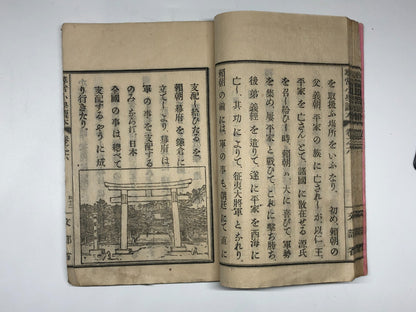 を取扱ふ場所をいふなり。初め、頼朝の
父義朝、平家の族に亡されしが、以仁王、
平家を亡さんとて、諸國に散在せる源氏
を召し給ひし時、頼朝も、大に喜びて、軍勢
を集め、屡平家と戰ひて、これに撃ち勝ち、
後、弟義經を遣りて、遂に平家を西海に
亡し、其功によりて、征夷大將軍となれり。
頼朝の前には、軍の事も、朝廷にて、直に
支配し給ひしなるを、
頼朝、幕府を鎌倉に
立てしより、幕府は、
軍の事を支配する
のみならず、日本
全國の事は、總べて
支配するやうに成
り行きたり。
文部省